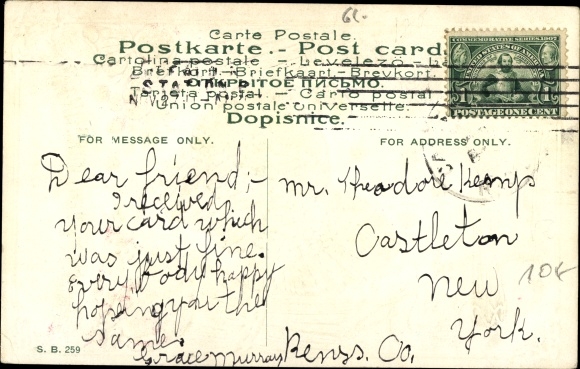 6c.
Carte Postale.
Postkarte.- Post card.
Cartolina postale - Levelező-La
Brefkort-Briefkaart-Brevkort.
ОТКРЫТОЕ ПИСЬМО.
Tarjeta postal - Carto postal
Union postale universelle.
Dopisnice.
STA
COMMEMORATIVE SERIES 1907
UNITED STATES OF AMERICA
1 1
POSTAGE ONE CENT
FOR MESSAGE ONLY.
Dear friend;-
I received
your card which
was just fine.
Every body happy
hoping you the
same.
Grace Murray
FOR ADDRESS ONLY.
Mr. Theodore Kemps
Castleton
New
York.
Renss. Co,
10¢
S. B. 259